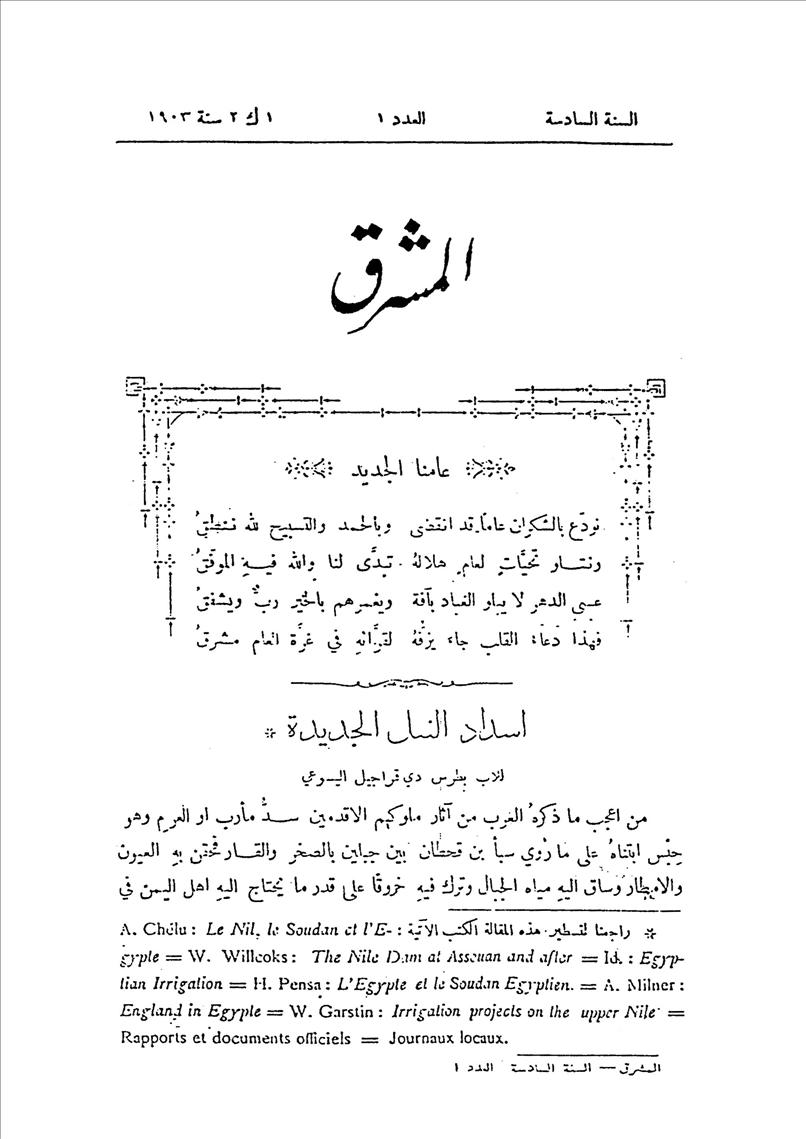 السنة السادسة العدد ١ ١ ك ٢ سنة ١٩٠٣
المشرق
عامنا الجديد
نودّع بالشكران عاماً قد انقضى وبالحمد والتسبيح لله ننطقُ
ونتلو تحيَّاتٍ لعامٍ هلالهُ تبدَّى لنا والله فيهِ الموفّقُ
عسى الدهر لا يبلو العباد بآفة ويغمرهم بالخير ربٌّ ويشفقُ
فهذا دعاء القلب جاء يزفّهُ لقرَّائهِ في غرَّة العام مشرقُ
اسداد النيل الجديدة *
للاب بطرس دي تراجيل اليسوعي
من اعجب ما ذكرهُ العرب من آثار ملوكهم الاقدمين سدُّ مأرب او العرم وهو
حِبْس ابتناهُ على ما رُوي سبأ بن قحطان بين جبلين بالصخر والقار فحقن بهِ العيون
والامطار وساق اليهِ مياه الجبال وترك فيهِ خروقًا على قدر ما يحتاج اليهِ اهل اليمن في
* راجعنا لتسطير هذه المقالة الكتب الآتية : A. Chélu : Le Nil, le Soudan et l'E-
gypte = W. Willcoks : The Nile Dam at Assouan and after = Id. : Egyp-
tian Irrigation = H. Pensa : L'Egypte et le Soudan Egyptien. = A. Milner :
England in Egypte = W. Garstin : Irrigation projects on the upper Nile =
Rapports et documents officiels = Journaux locaux.
المشرق — السنة السادسة العدد ١